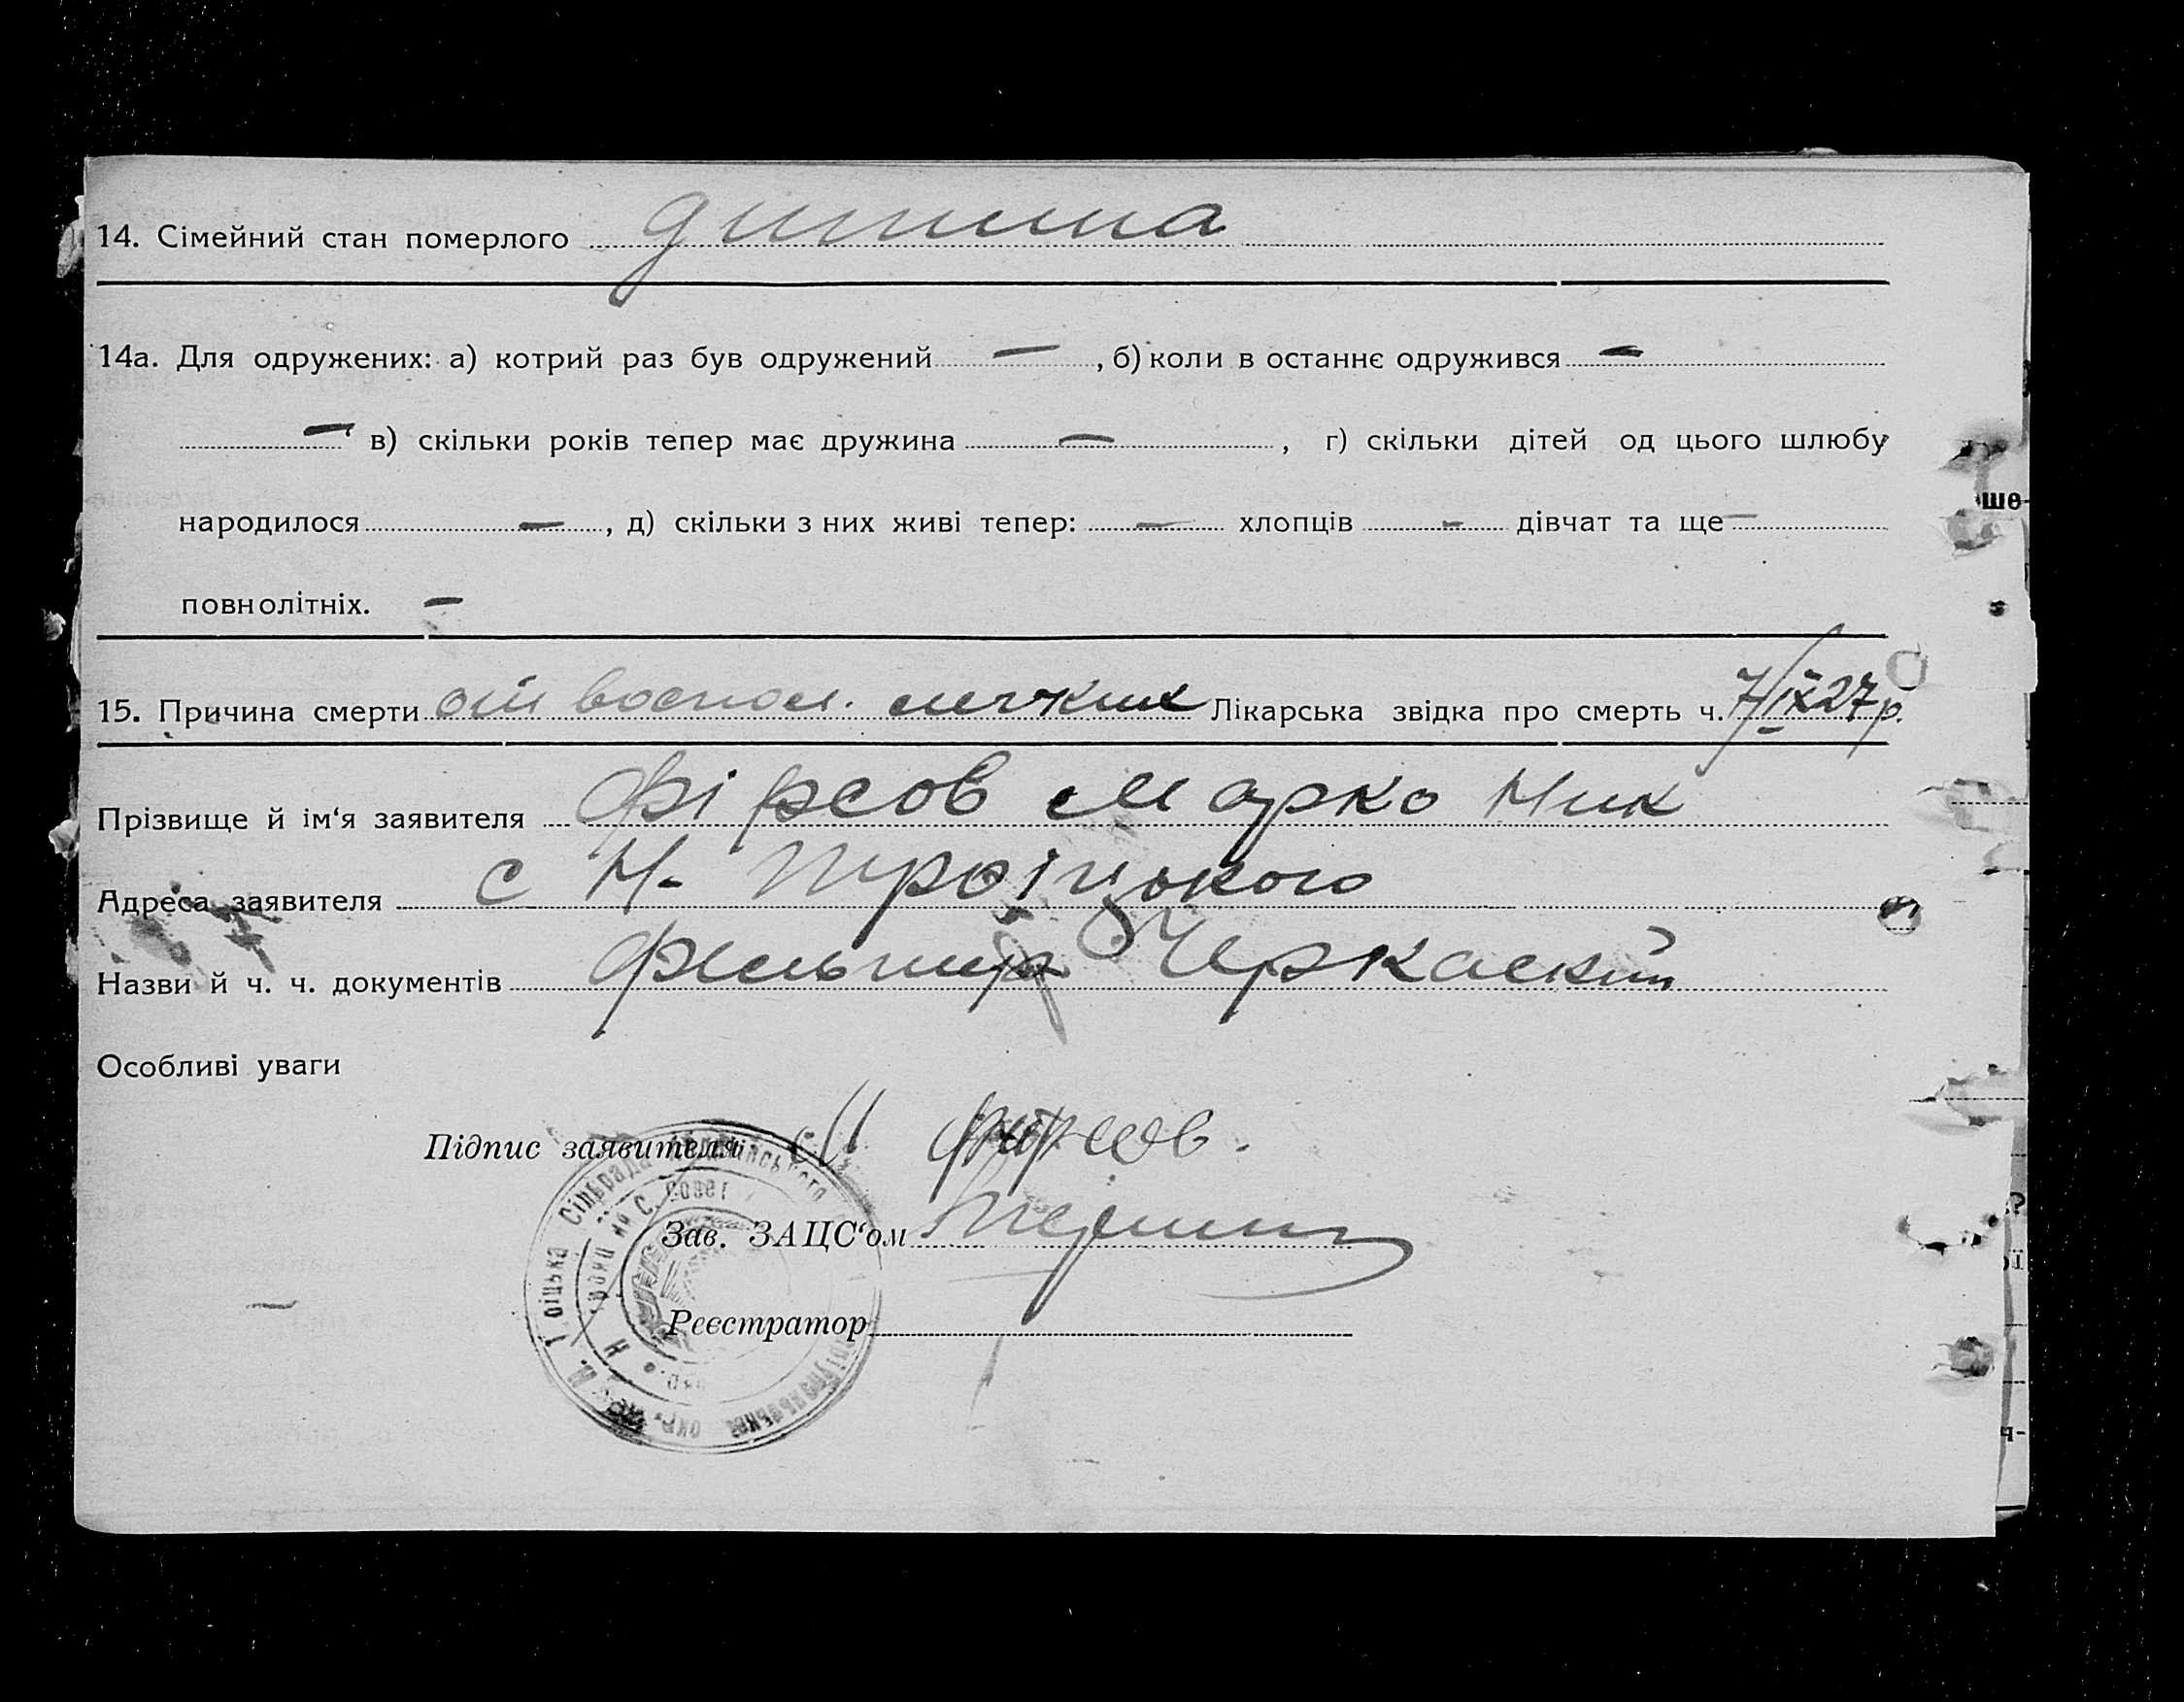 14. Сімейний стан померлого дитина
14а. Для одружених: а) котрий раз був одружений —, б) коли в останнє одружився —
— в) скільки років тепер має дружина —, г) скільки дітей од цього шлюбу
народилося —, д) скільки з них живі тепер: — хлопців - дівчат та ще —
повнолітніх. —
15. Причина смерти от воспол. легких Лікарська звідка про смерть ч. 7/IX 27 р.
Прізвище й ім‘я заявителя Фірсов Марко Ник
Адреса заявителя с Н. Троіцького
Назви й ч. ч. документів Фельшер Черкаский
Особливі уваги
Підпис заявителя М Фирсов.
Зав. ЗАЦС‘ом
Реєстратор
Сільрада
окр.
ше-